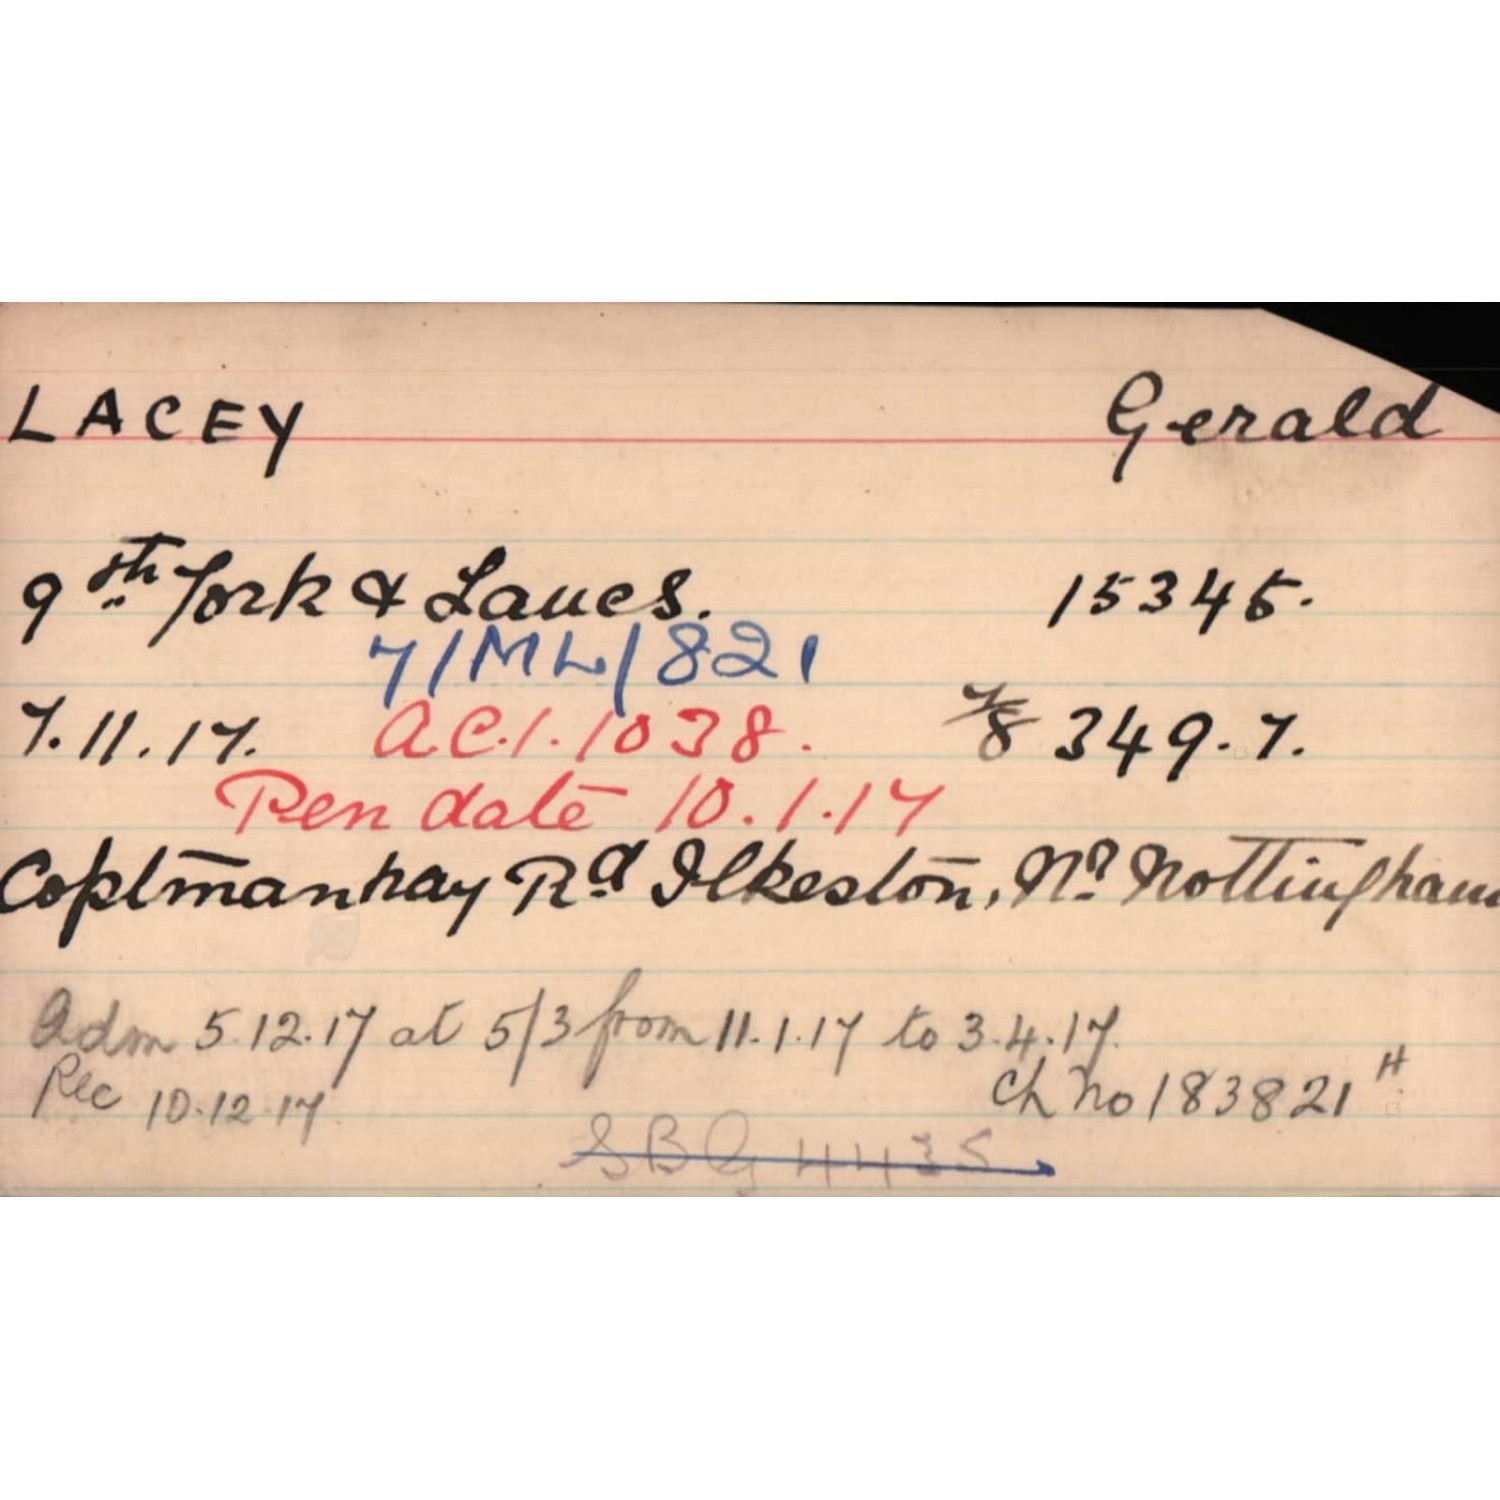 LACEY Gerald
9th York & Lancs. 15345.
7/ML/821
7.11.17. A.C.I. 1038. 7/8 349.7.
Pen date 10.1.17
Coplmanhay Rd Ilkeston, Nr Nottingham
Adm 5.12.17 at 5/3 from 11.1.17 to 3.4.17.
Rec 10.12.17 Ch No 183821 H
SBG 4435